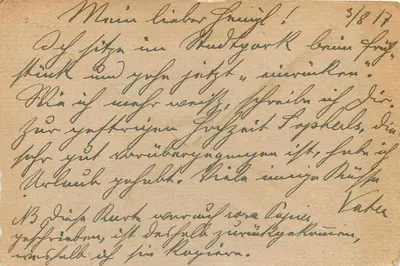 Mein lieber Heinzl! 3/8 17
Ich sitze im Stadtpark beim Früh-
stück und gehe jetzt „einrücken".
Wie ich mehr weiß, schreibe ich Dir.
Zur gestrigen Hochzeit die
sehr gut vorübergegangen ist, habe ich
Urlaub gehabt. Viele innige Küsse
Vater
NB Diese Karte war auch
geschrieben, ist deshalb zurückgekommen,
weshalb ich sie kopiere.